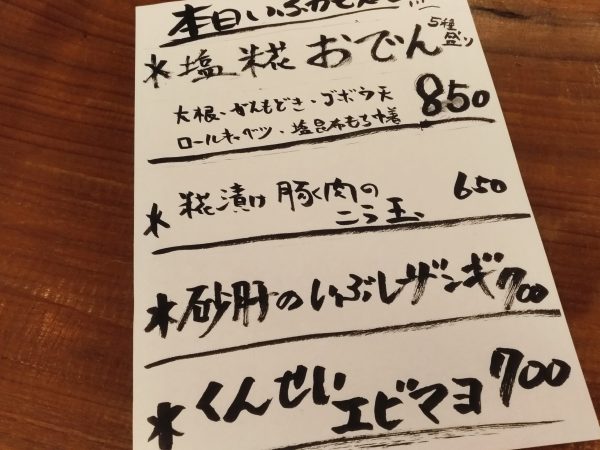 本日いぶ
＊塩糀おでん 5種盛り
大根・がんもどき・ゴボウ天
ロールキャベツ・塩昆布もち巾着 850
＊糀漬け豚肉の
ニラ玉 650
＊砂肝のいぶしザンギ 700
＊くんせい
エビマヨ 700